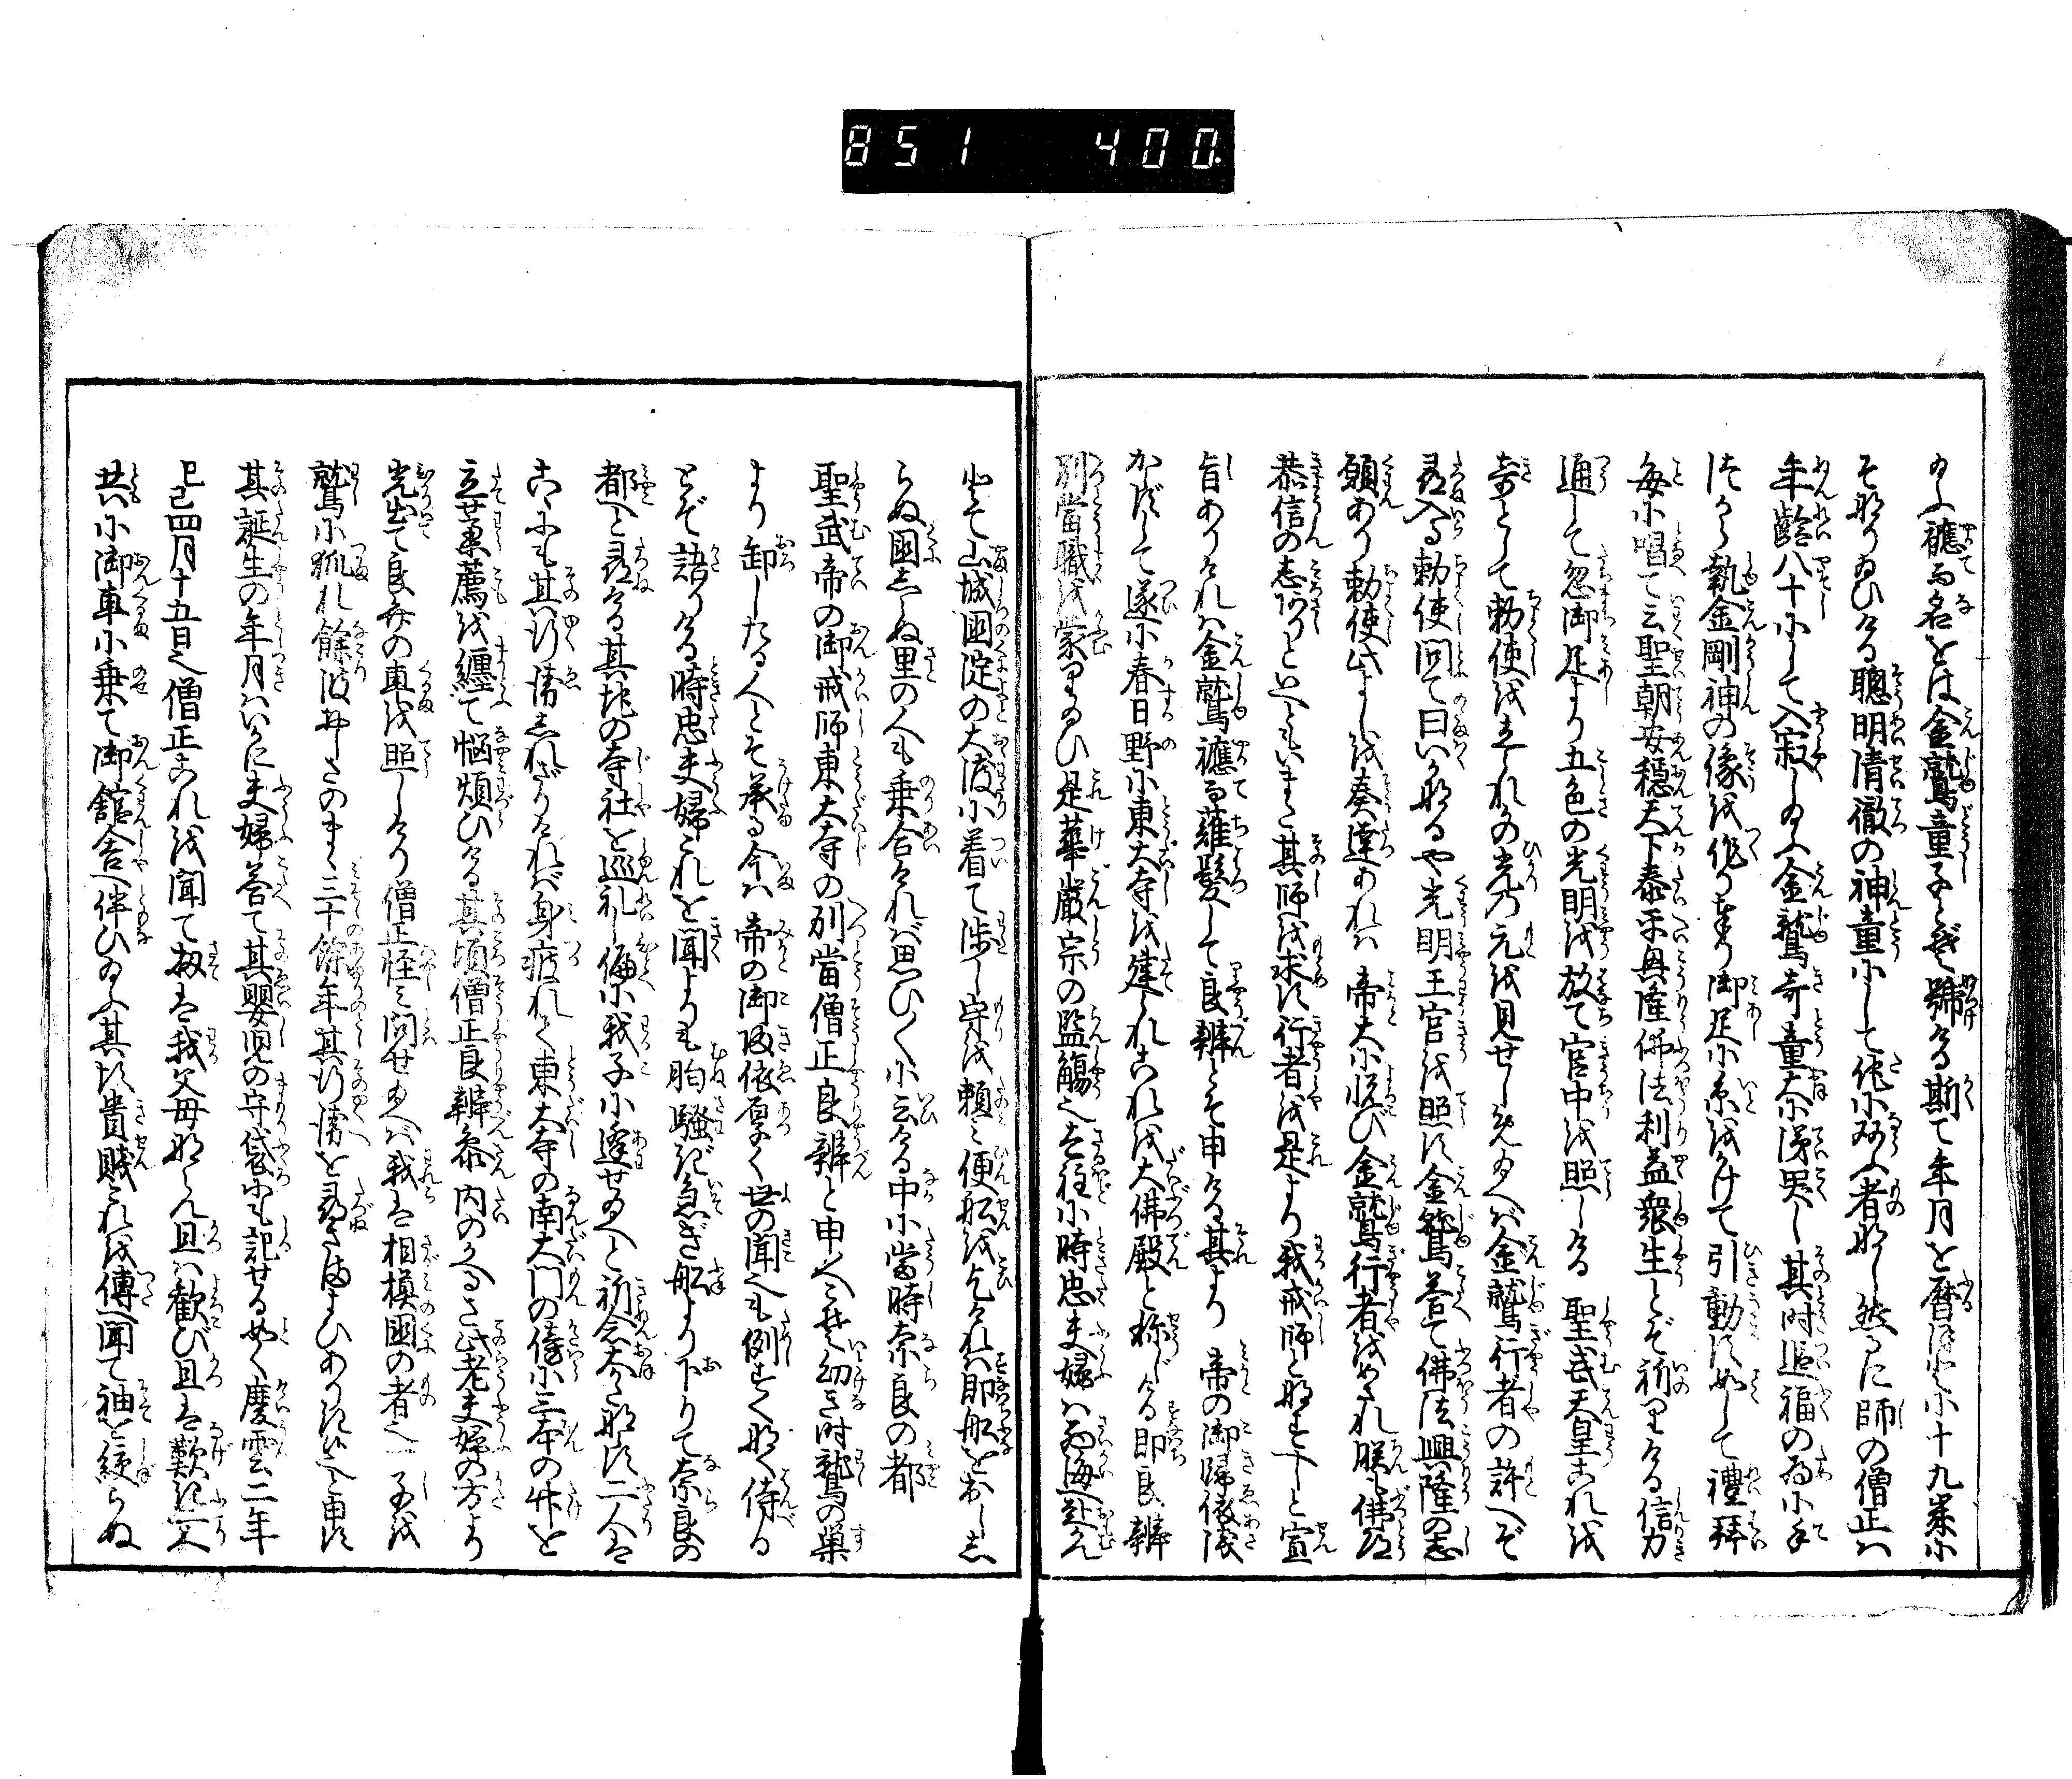 851 400.
ゐふ軈而名をは金鷲童子とぞ號ける斯て年月を暦ほどに十九歳に
そ成りゐひける聰明清徹の神童にして他に双ふ者なし然るに師の僧正は
年齢八十にして入寂しゐふ金鷲奇童大に涕哭し其时追福の為に手
つから執金剛神の像を作り奉り御足に糸をかけて引動すめして禮拜
毎に唱て云聖朝安穏天下泰平興隆佛法利益衆生とぞ祈りける信力
通して忽御足より五色の光明を放て宮中を照しける 聖武天皇これを
奇として勅使を立られ彼光乃元を見せしめ玉へば金鷲行者の許へぞ
尋入る勅使問て曰いかなるや光明王宮を照す金鷲荅て佛法興隆の志
願あり勅使此よしを奏達あれは 帝大に悦び金鷲行者をめされ朕も佛道
恭信の志ありといへともいまた其師を求す行者を是より我戒師と那すへしと宣
旨ありけれは金鷲軈而薙髮して良辨とそ申ける其より 帝の御帰依浅
からずして遂に春日野に東大寺を建られこれを大佛殿と称しける即良辨
別當職を蒙りゐひ是華嚴宗の監觴也去程に時忠夫婦は西海へ赴かん
とて山城国淀の大渡に着て渉し守を頼み便舩を乞けれは即舩を出し志
らぬ國志らぬ里の人も乗合ければ思ひ〱に云ける中に當時奈良の都
聖武帝の御戒師東大寺の別當僧正良辨と申人こそ幼き时鷲の巣
より卸したる人とそ承る今は帝の御歸依厚く世の聞へも例すく那く侍る
とぞ語りける時忠夫婦これを聞よりも胸騒ぎ急ぎ舩より下りて奈良の
都へと尋ける其地の寺社を巡礼し偏に我子に逢せ玉へと祈念奈た那す二人は
されども其行衛しれざりければ身疲れて東大寺の南大門の傍に三本の竹を
立菰薦を纏て悩煩ひける其頃僧正良辨参内のかへるさ此老夫婦の方より
光出て良弁の車を照しけり僧正怪み问せ玉へば我は相模國の者也一子を
鷲に抓れ餘波おしさのまゝ三十餘年其行衛を尋さまよひありきしと申す
其誕生の年月はいかに夫婦荅て其嬰児の守袋にも記せる如く慶雲二年
乙巳四月十五日也僧正これを聞て扨は我父母那らん且は歓び且は歎き二人
共に御車に乗て御舘舎へ伴ひゐふ其比貴賤これを傳聞て袖を絞らぬ